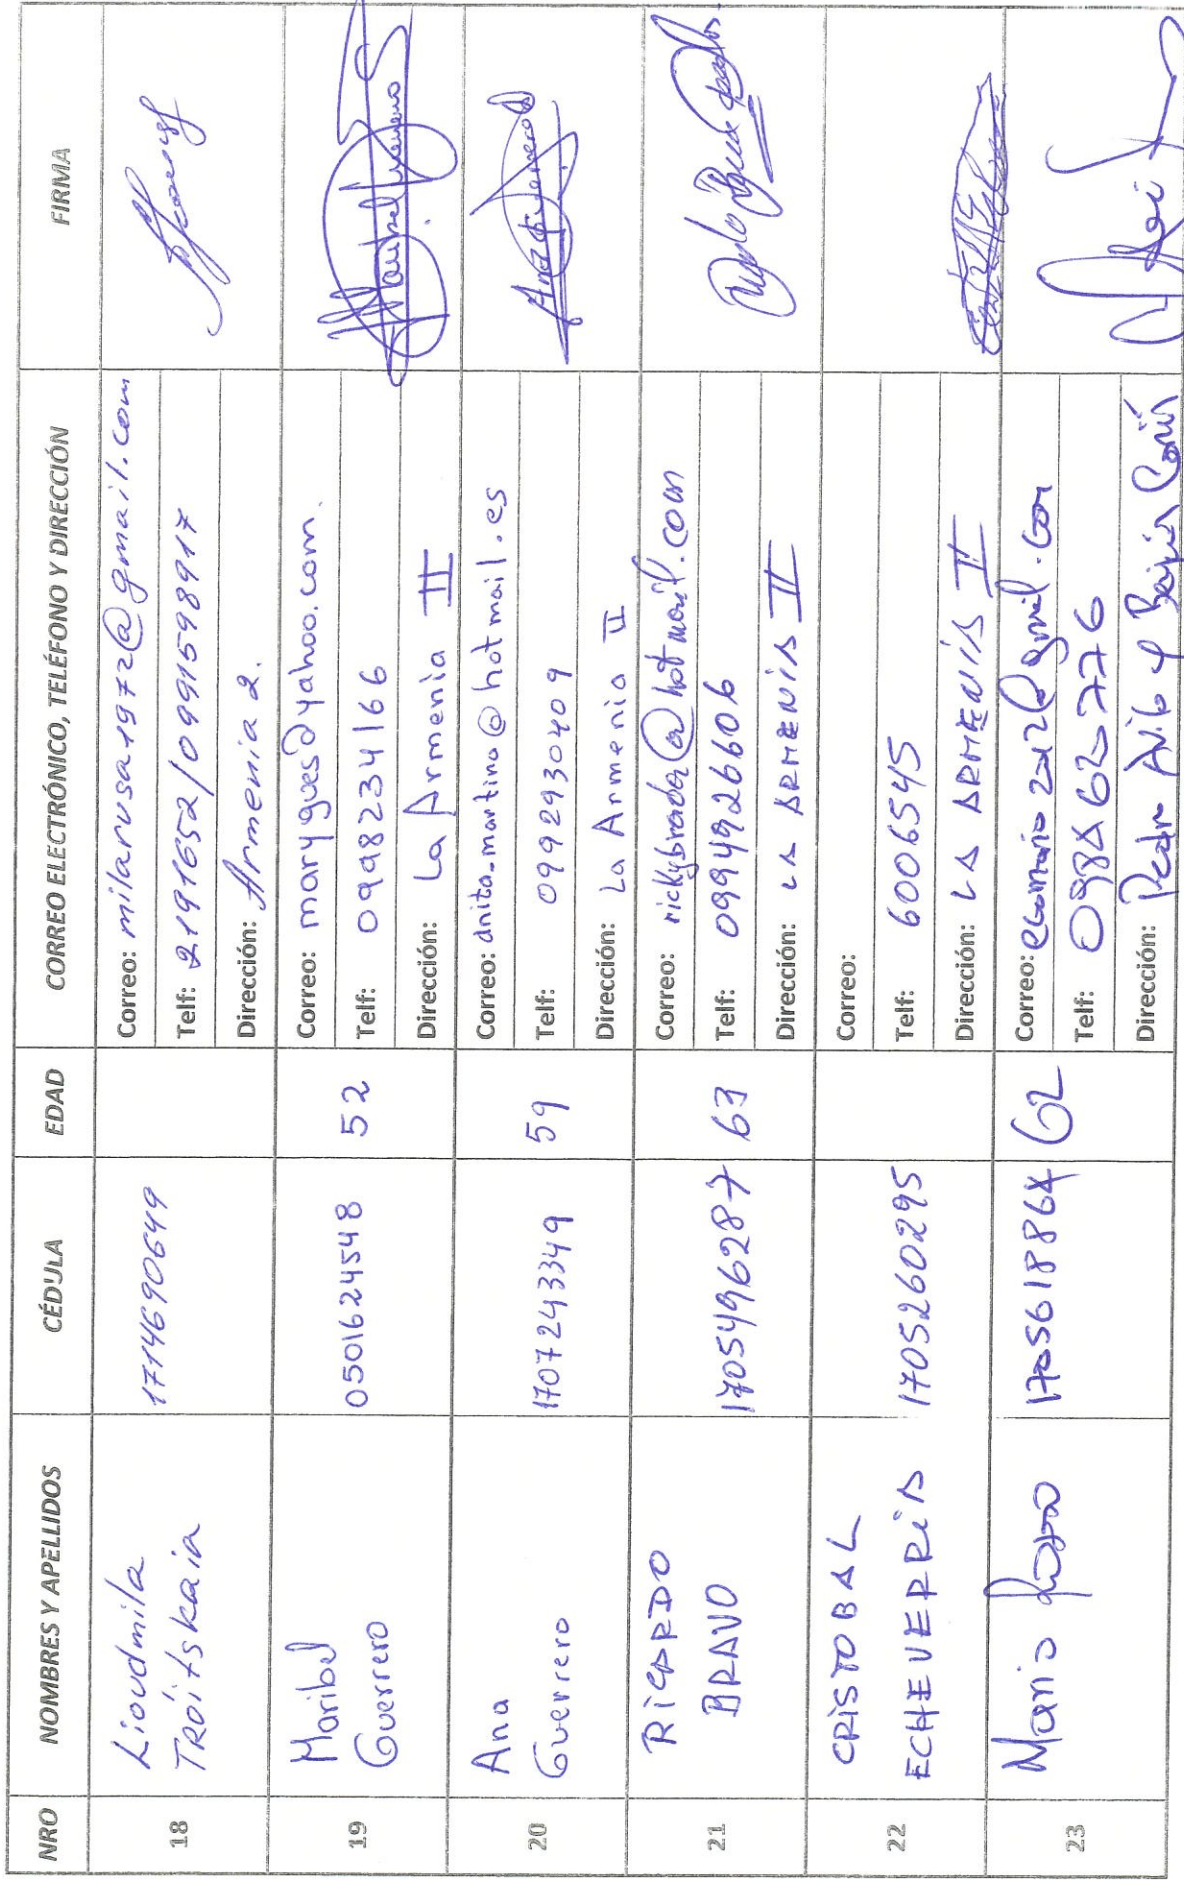 NRO NOMBRES Y APELLIDOS CÉDULA EDAD CORREO ELECTRÓNICO, TELÉFONO Y DIRECCIÓN FIRMA
18 Lioudmila Troitskaia 1714690649 Correo: milarusa1972@gmail.com
Telf: 2191652/0991598917
Dirección: Armenia 2.
19 Maribel Guerrero 0501624548 52 Correo: marygues@yahoo.com.
Telf: 0998234166
Dirección: La Armenia II
20 Ana Guerrero 1707243349 59 Correo: anita_martino@hotmail.es
Telf: 0992930409
Dirección: La Armenia II
21 RICARDO BRAVO 1705496287 63 Correo: rickybravoa@hotmail.com
Telf: 0994926606
Dirección: LA ARMENIA II
22 CRISTOBAL ECHEVERRIA 1705260295 Correo:
Telf: 6006545
Dirección: LA ARMENIA II
23 Mario 1705618864 62 Correo:
Telf:
Dirección: Pedro